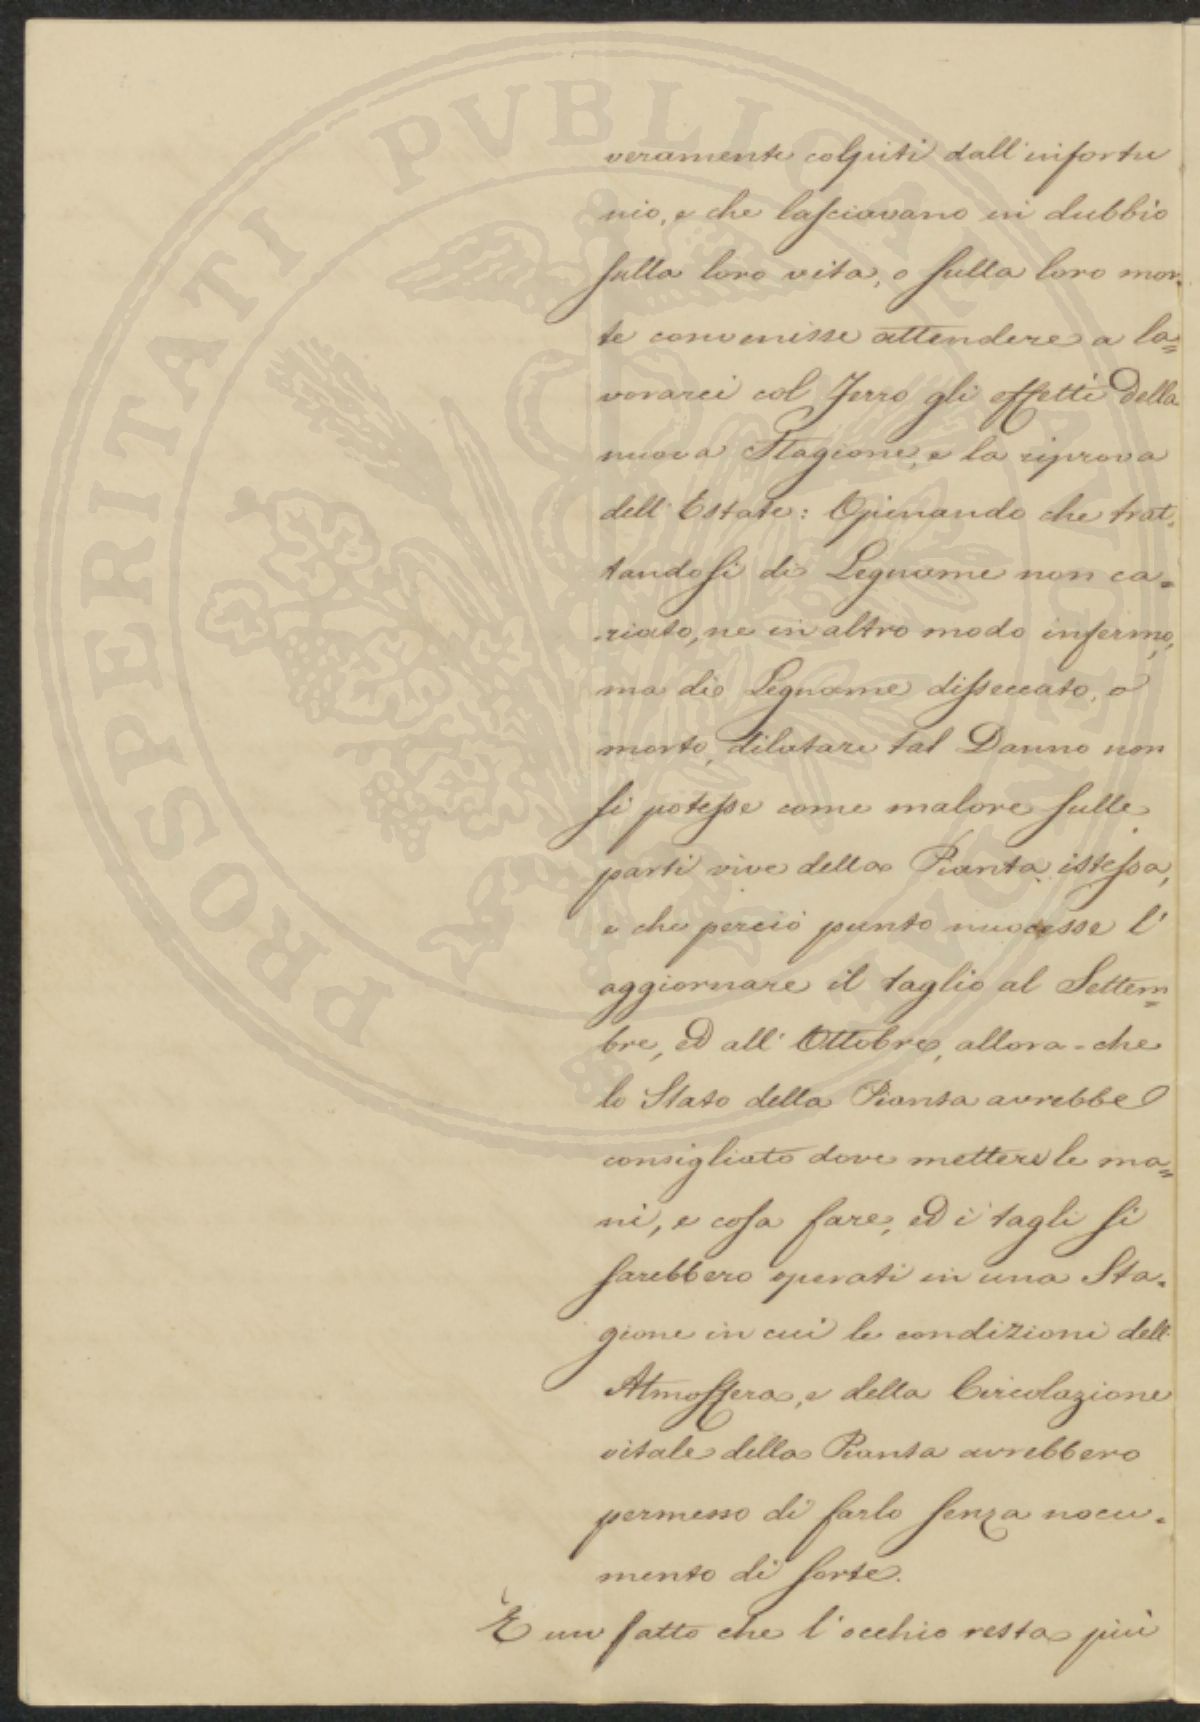 PROSPERITATI PVBLICAE AVGENDAE
veramente colpiti dall'infortu
nio, e che lasciavano in dubbio
sulla loro vita, o sulla loro mor-
te convenisse attendere a la=
vorarci col Ferro gli effetti della
nuova Stagione, e la riprova
dell'Estate: Opinando che trat-
tandosi di Legname non ca=
riato, ne in altro modo infermo,
ma di Legname disseccato, o
morto, dilatare tal Danno non
si potesse come malore sulle
parti vive della Pianta istessa,
e che perciò punto nuocesse l'
aggiornare il taglio al Settem=
bre, ed all'Ottobre, allora-che
lo Stato della Pianta avrebbe
consigliato dove mettere le ma=
ni, e cosa fare, ed i tagli si
sarebbero operati in una Sta-
gione in cui le condizioni dell'
Atmosfera, e della Circolazione
vitale della Pianta avrebbero
permesso di farlo senza nocu-
mento di sorte.
È un fatto che l'occhio resta più